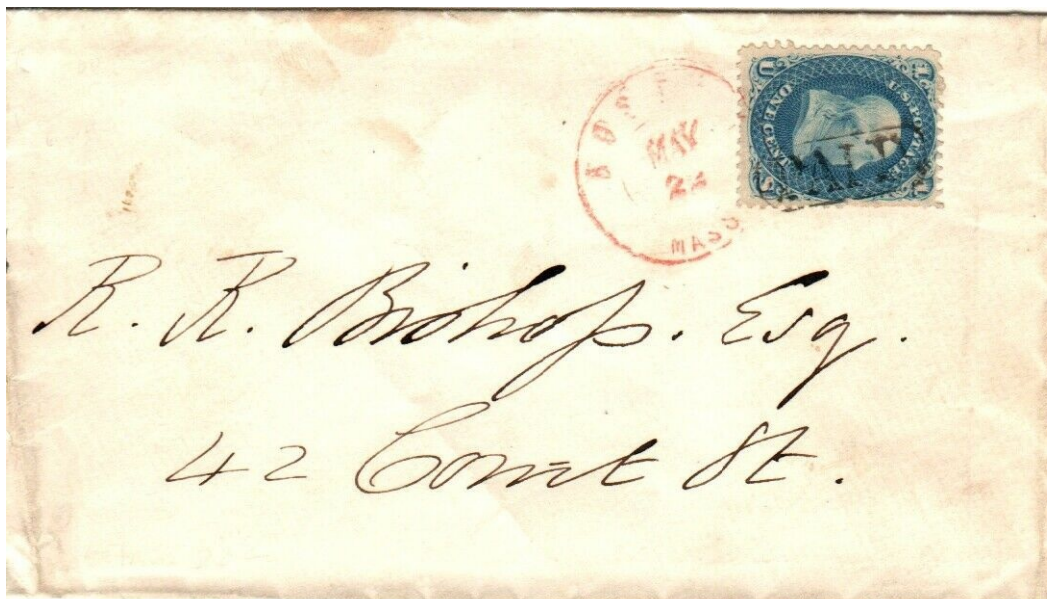 BOST
MAY
22
MASS
U.S. POSTAGE
ONE CENT
U
1
S
1
PAID
R. R. Bishop. Esq.
42 Court St.